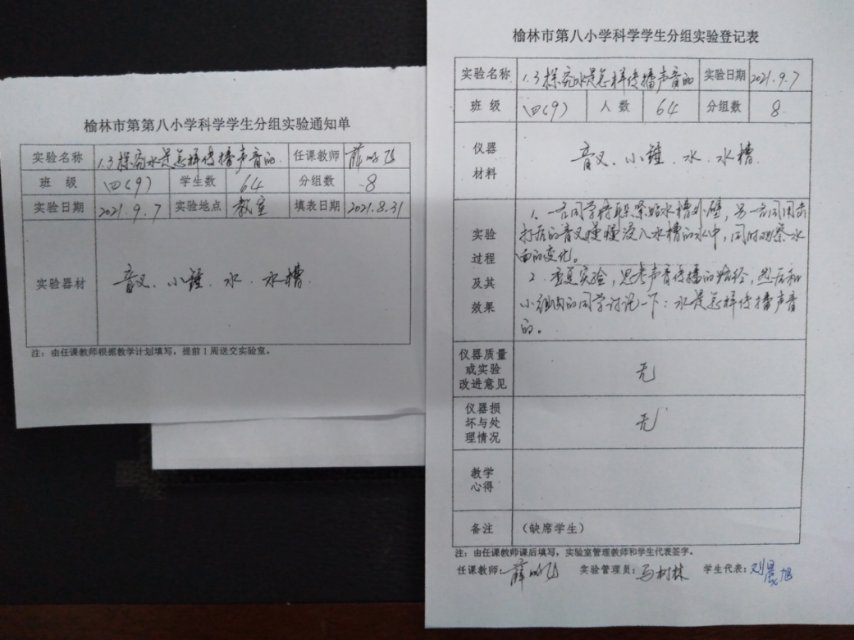 榆林市第第八小学科学学生分组实验通知单
实验名称 1.3探究水是怎样传播声音的 任课教师
班 级 四(9) 学生数 64 分组数 8
实验日期 2021.9.7 实验地点 教室 填表日期 2021.8.31
实验器材 音叉、小锤、水、水槽
注：由任课教师根据教学计划填写，提前1周送交实验室。
榆林市第八小学科学学生分组实验登记表
实验名称 1.3探究水是怎样传播声音的 实验日期 2021.9.7
班 级 四(9) 人 数 64 分组数 8
仪器
材料
音叉、小锤、水、水槽
实验
过程
及其
效果
1、一名同学将耳朵紧贴水槽外壁，另一名同学用击
打后的音叉慢慢浸入水槽的水中，同时观察水
面的变化。
2、重复实验，思考声音传播的路径，然后和
小组内的同学讨论一下：水是怎样传播声音
的。
仪器质量
或实验
改进意见
无
仪器损
坏与处
理情况
无
教学
心得
备注 (缺席学生)
注：由任课教师课后填写，实验室管理教师和学生代表签字。
任课教师： 实验管理员：马树林 学生代表：刘晨旭